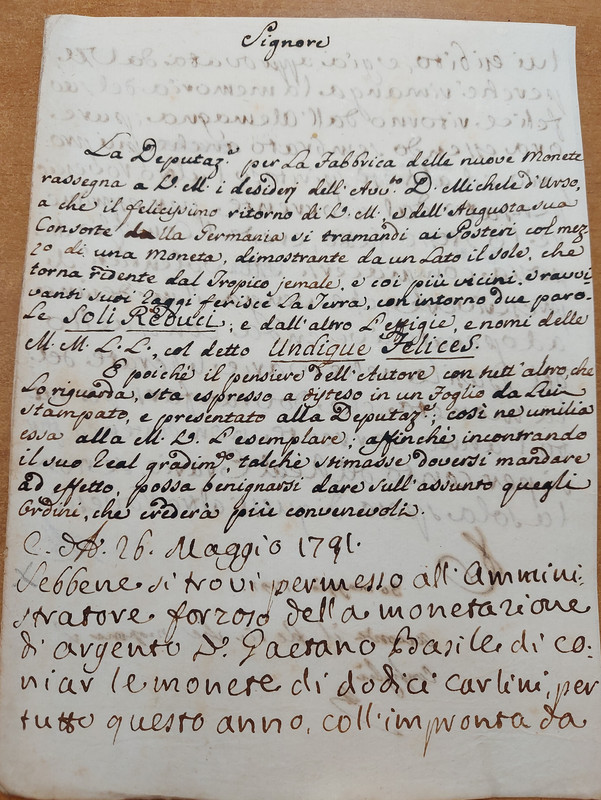 Signore
La Deputaz.e per La Fabbrica delle nuove Monete
rassegna a V. M. i desiderj dell'Avv.to D. Michele d'Urso,
a chè il felicissimo ritorno di V. M. e dell'Augusta sua
Consorte dalla Germania si tramandi ai Posteri col mez-
zo di una Moneta, dimostrante da un Lato il sole, che
torna ridente dal Tropico jemale, e coi più vicini, e ravvi-
vanti suoi raggi ferisce La Terra, con intorno due paro-
le Soli Reduci; e dall'altro L'effigie, e nomi delle
M. M. L. L., col detto Undique Felices.
E poichè il pensiere dell'Autore con tutt'altro, che
Lo riguarda, sta espresso a disteso in un Foglio da Lui
stampato, e presentato alla Deputaz.e; così ne umilia
essa alla M. V. L'esemplare; affinchè incontrando
il suo Real gradim.to, talchè stimasse doversi mandare
ad effetto, possa benignarsi dare sull'assunto quegli
Ordini, che crederà più convenevoli.
26. Maggio 1791.
Sebbene si trovi permesso all'Ammini-
stratore forzoso della monetazione
di argento D. Gaetano Basile di co-
niar le monete di dodici carlini, per
tutto questo anno, coll'impronta da